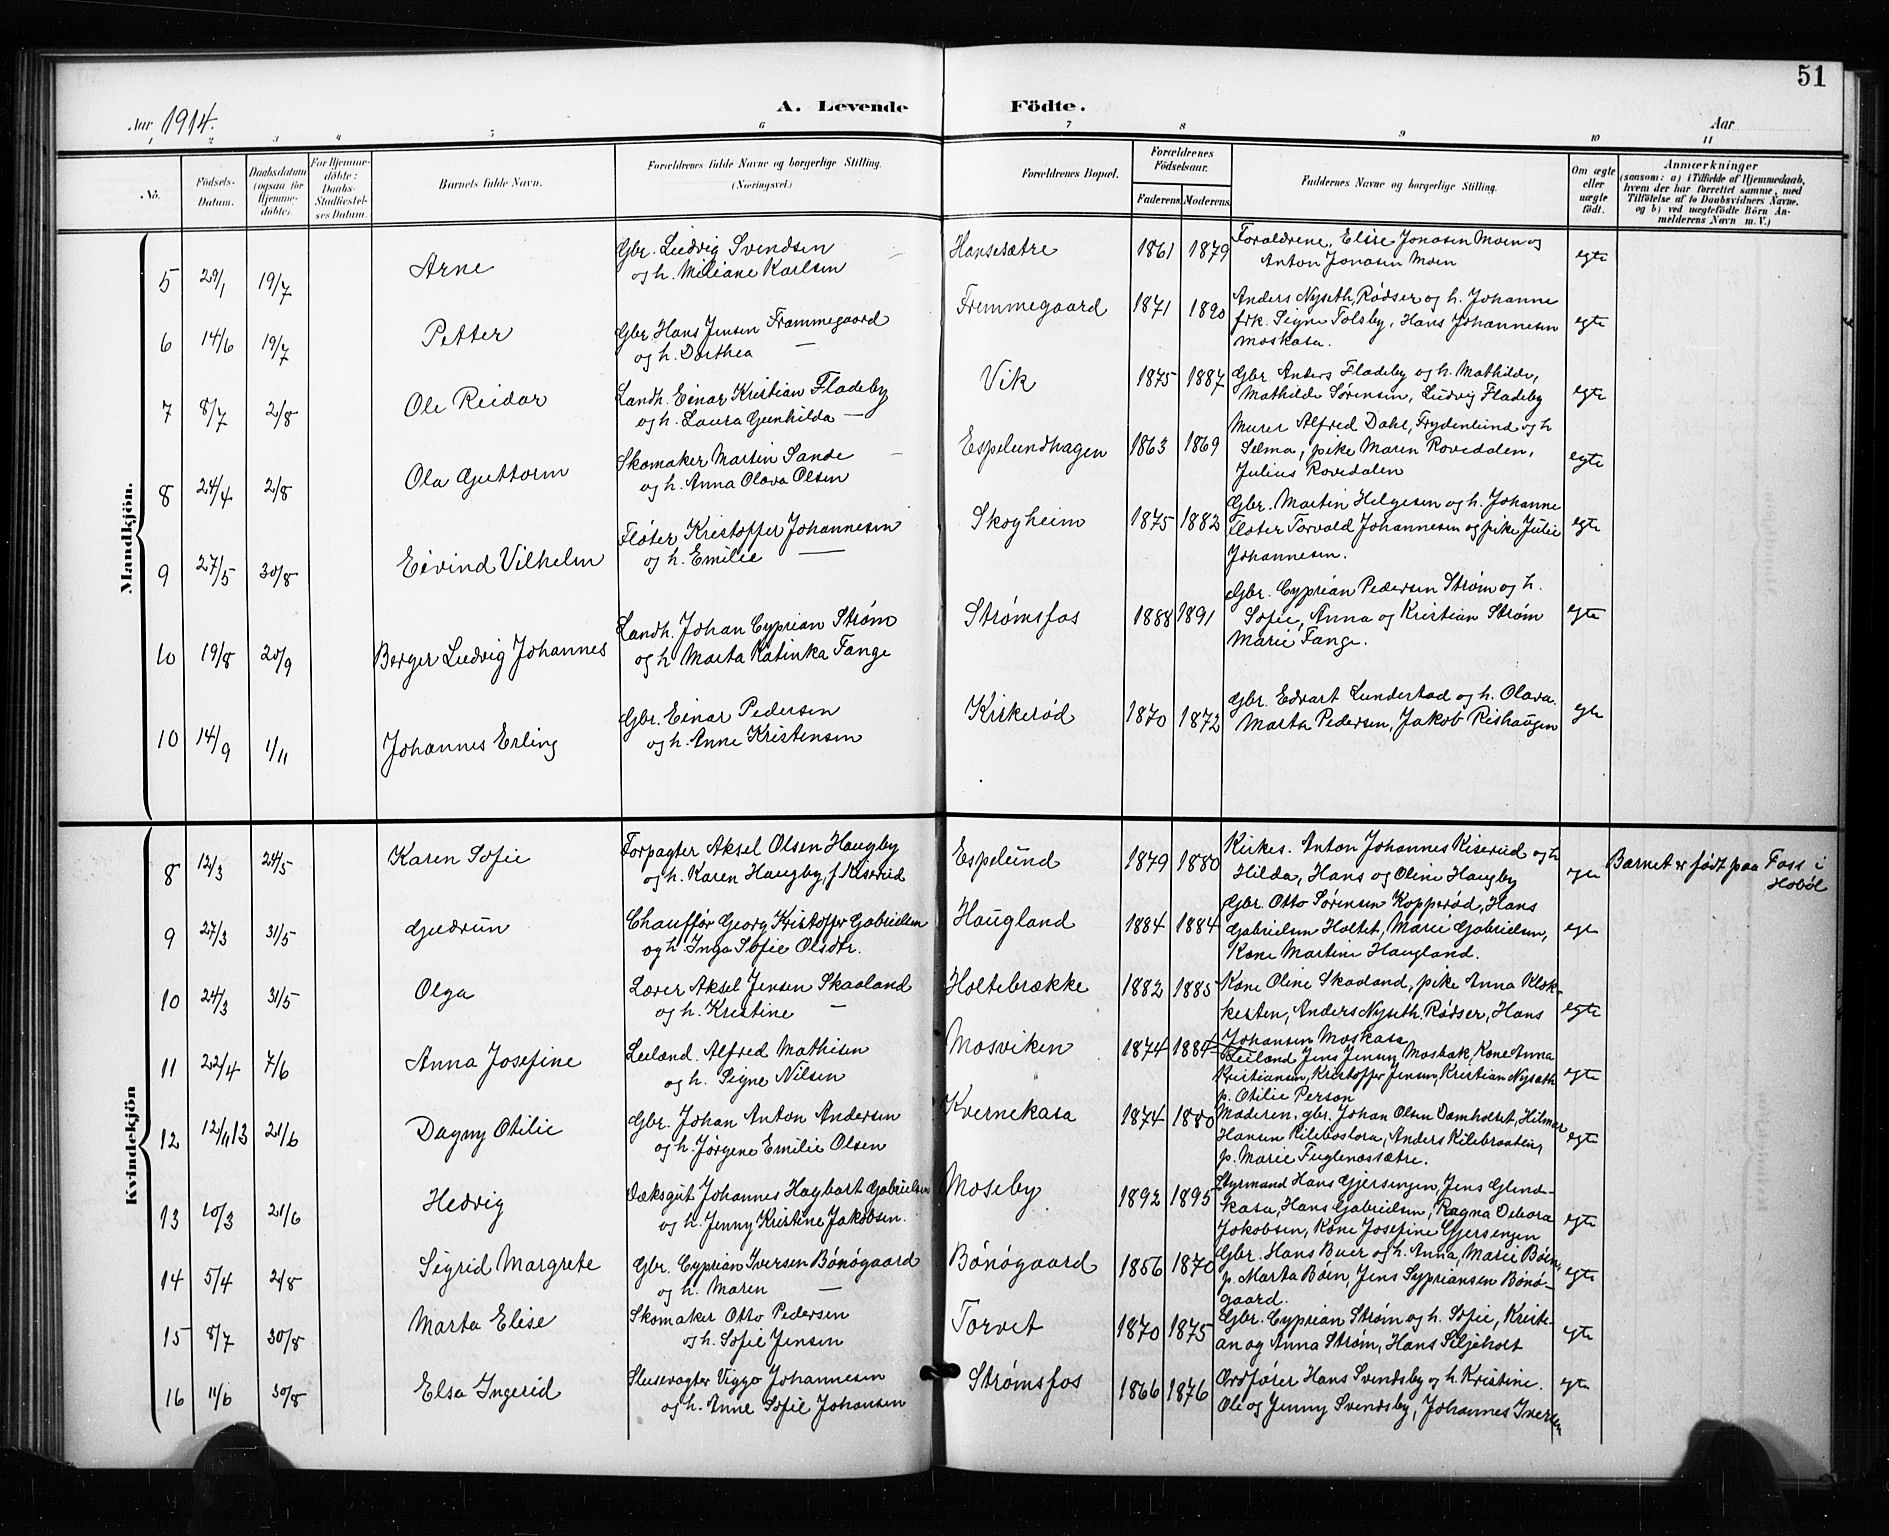 51
A. Levende Födte.
Aar 1914.
Aar
1 2 3 4 5 6 7 8 9 10 11
No.
Födsels-
Datum.
Daabsdatum
(ogsaa for
Hjemme-
döbte).
For Hjemme-
döbte:
Daabs-
Stadfæstel-
ses Datum.
Barnets fulde Navn.
Forældrenes fulde Navne og borgerlige Stilling.
(Næringsvei.)
Forældrenes Bopæl.
Forældrenes
Födselsaar.
Faderens. Moderens.
Faddernes Navne og borgerlige Stilling.
Om ægte
eller
uægte
födt.
Anmærkninger
(saasom: a) i Tilfælde af Hjemmedaab,
hvem der har forrettet samme, med
Tilföielse af to Daabsvidners Navne.
og b) ved uægtefödte Börn An-
melderens Navn m. V.)
Mandkjön.
5 29/1 19/7 Arne
Gbr. Ludvig Svendsen
og h. Miliane Karlsen
Hansesætre 1861 1879
Forældrene, Elise Jonasen Moen og
Anton Jonasen Moen
egte
6 14/6 19/7 Petter
Gbr. Hans Jensen Frammegaard
og h. Dorthea —
Fremmegaard 1871 1890
Anders Nyseth, Rødser og h. Johanne
frk. Signe Tolsby, Hans Johannesen
Moskasa.
egte
7 8/7 2/8 Ole Reidar
Landh. Einar Kristian Fladeby
og h. Laura Gunhilda —
Vik 1875 1887
Gbr Anders Fladeby og h. Mathilde,
Mathilde Sørensen, Ludvig Fladeby
egte
8 24/4 2/8 Ola Guttorm
Skomaker Martin Sande
og h. Anna Olava Olsen
Espelundhagen 1863 1869
Murer Alfred Dahl, Frydenlund og h
Selma, pike Maren Rovedalen,
Julius Rovedalen
egte
9 27/5 30/8 Eivind Vilhelm
Fløter Kristoffer Johannesen
og h. Emilie —
Skogheim 1875 1882
Gbr. Martin Helgesen og h. Johanne
Fløter Torvald Johannesen og pike Julie
Johannesen.
egte
10 19/8 20/9 Borger Ludvig Johannes
Landh. Johan Cyprian Strøm
og h Marta Katinka Fange
Strømsfos 1888 1891
Gbr. Cyprian Pedersen Strøm og h.
Sofie, Anna og Kristian Strøm
Marie Fange.
egte
10 14/9 1/11 Johannes Erling
Gbr. Einar Pedersen
og h. Anne Kristensen
Kirkerød 1870 1872
Gbr. Edvart Lunderstad og h. Olava.
Marta Pedersen, Jakob Rishaugen
egte
Kvindekjön
8 12/3 24/5 Karen Sofie
Forpagter Aksel Olsen Haugby
og h. Karen Haugby, f Kiserud
Espelund 1879 1880
Kirkes. Anton Johannes Kiserud og h
Hilda, Hans og Oline Haugby
egte
Barnet er født paa Foss i
Hobøl
9 27/3 31/5 Gudrun
Chauffør Georg Kristoffer Gabrielsen
og h. Inga Sofie Olsdtr.
Haugland 1884 1884
Gbr. Otto Sørensen Kopperød, Hans
Gabrielsen Holtet, Marie Gabrielsen,
Kone Martine Haugland.
egte
10 24/3 31/5 Olga
Lærer Aksel Jensen Skaaland
og h. Kristine —
Holtebrække 1882 1885
Kone Oline Skaaland, pike Anna Klok-
kersten, Anders Nyseth. Rødser, Hans
Johansen Moskasa
egte
11 22/4 7/6 Anna Josefine
Leilænd. Alfred Mathisen
og h. Signe Nilsen
Mosviken 1874 1884
Leiland Jens Jensen Mosbæk, Kone Anna
Kristiansen, Kristoffer Jensen, Kristian Nyseth
p. Otilie Person
egte
12 12/11 13 21/6 Dagny Otilie
Gbr. Johan Anton Andersen
og h. Jørgene Emilie Olsen
Kvernekasa 1874 1880
Moderen, gbr. Johan Olsen Damholtet, Hilmar
Hansen Kilebostora, Anders Kilebraaten,
p. Marie Fuglenessætre.
egte
13 10/3 21/6 Hedvig
Dæksgut Johannes Hagbart Gabrielsen
og h. Jenny Kristine Jakobsen.
Moseby 1892 1895
Styrmand Hans Gjersengen, Jens Glend-
kasa, Hans Gabrielsen, Ragna Debora
Jakobsen, Kone Josefine Gjersengen
egte
14 5/4 2/8 Sigrid Margrete
Gbr. Cyprian Iversen Bønøgaard
og h. Maren —
Bønøgaard 1856 1870
Gbr. Hans Buer og h. Anna, Marie Bøen,
p. Marta Bøen, Jens Syprians en Bønø-
gaard.
egte
15 8/7 30/8 Marta Elise
Skomaker Otto Pedersen
og h. Sofie Jensen
Torvet 1870 1875
Gbr. Cyprian Strøm og h. Sofie, Kristi-
an og Anna Strøm, Hans Siljeholt
egte
16 11/6 30/8 Elsa Ingerid
Slusevogter Viggo Johannesen
og h. Anne Sofie Johansen
Strømsfos 1866 1876
Ordfører Hans Svendsby og h. Kristine.
Ole og Jenny Svendsby, Johannes Iversen
egte